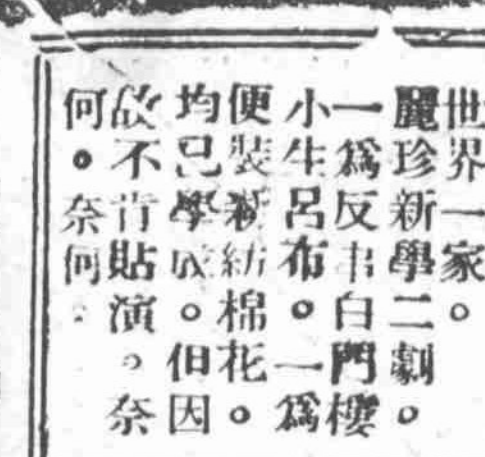 世界一家。
麗珍新學二劇。
一爲反串白門樓
小生呂布。一爲
便裝新紡棉花。
均已學成。但因
故不肯貼演。奈
何。奈何。